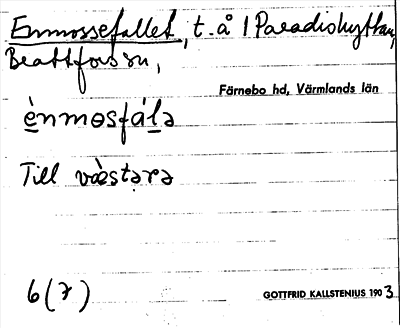 Enmossefallet, t. å 1 Paradishyttan,
Brattforssn,
Färnebo hd, Värmlands län
ènmosfála
Till væ̀stərə
6 (7)
GOTTFRID KALLSTENIUS 1903